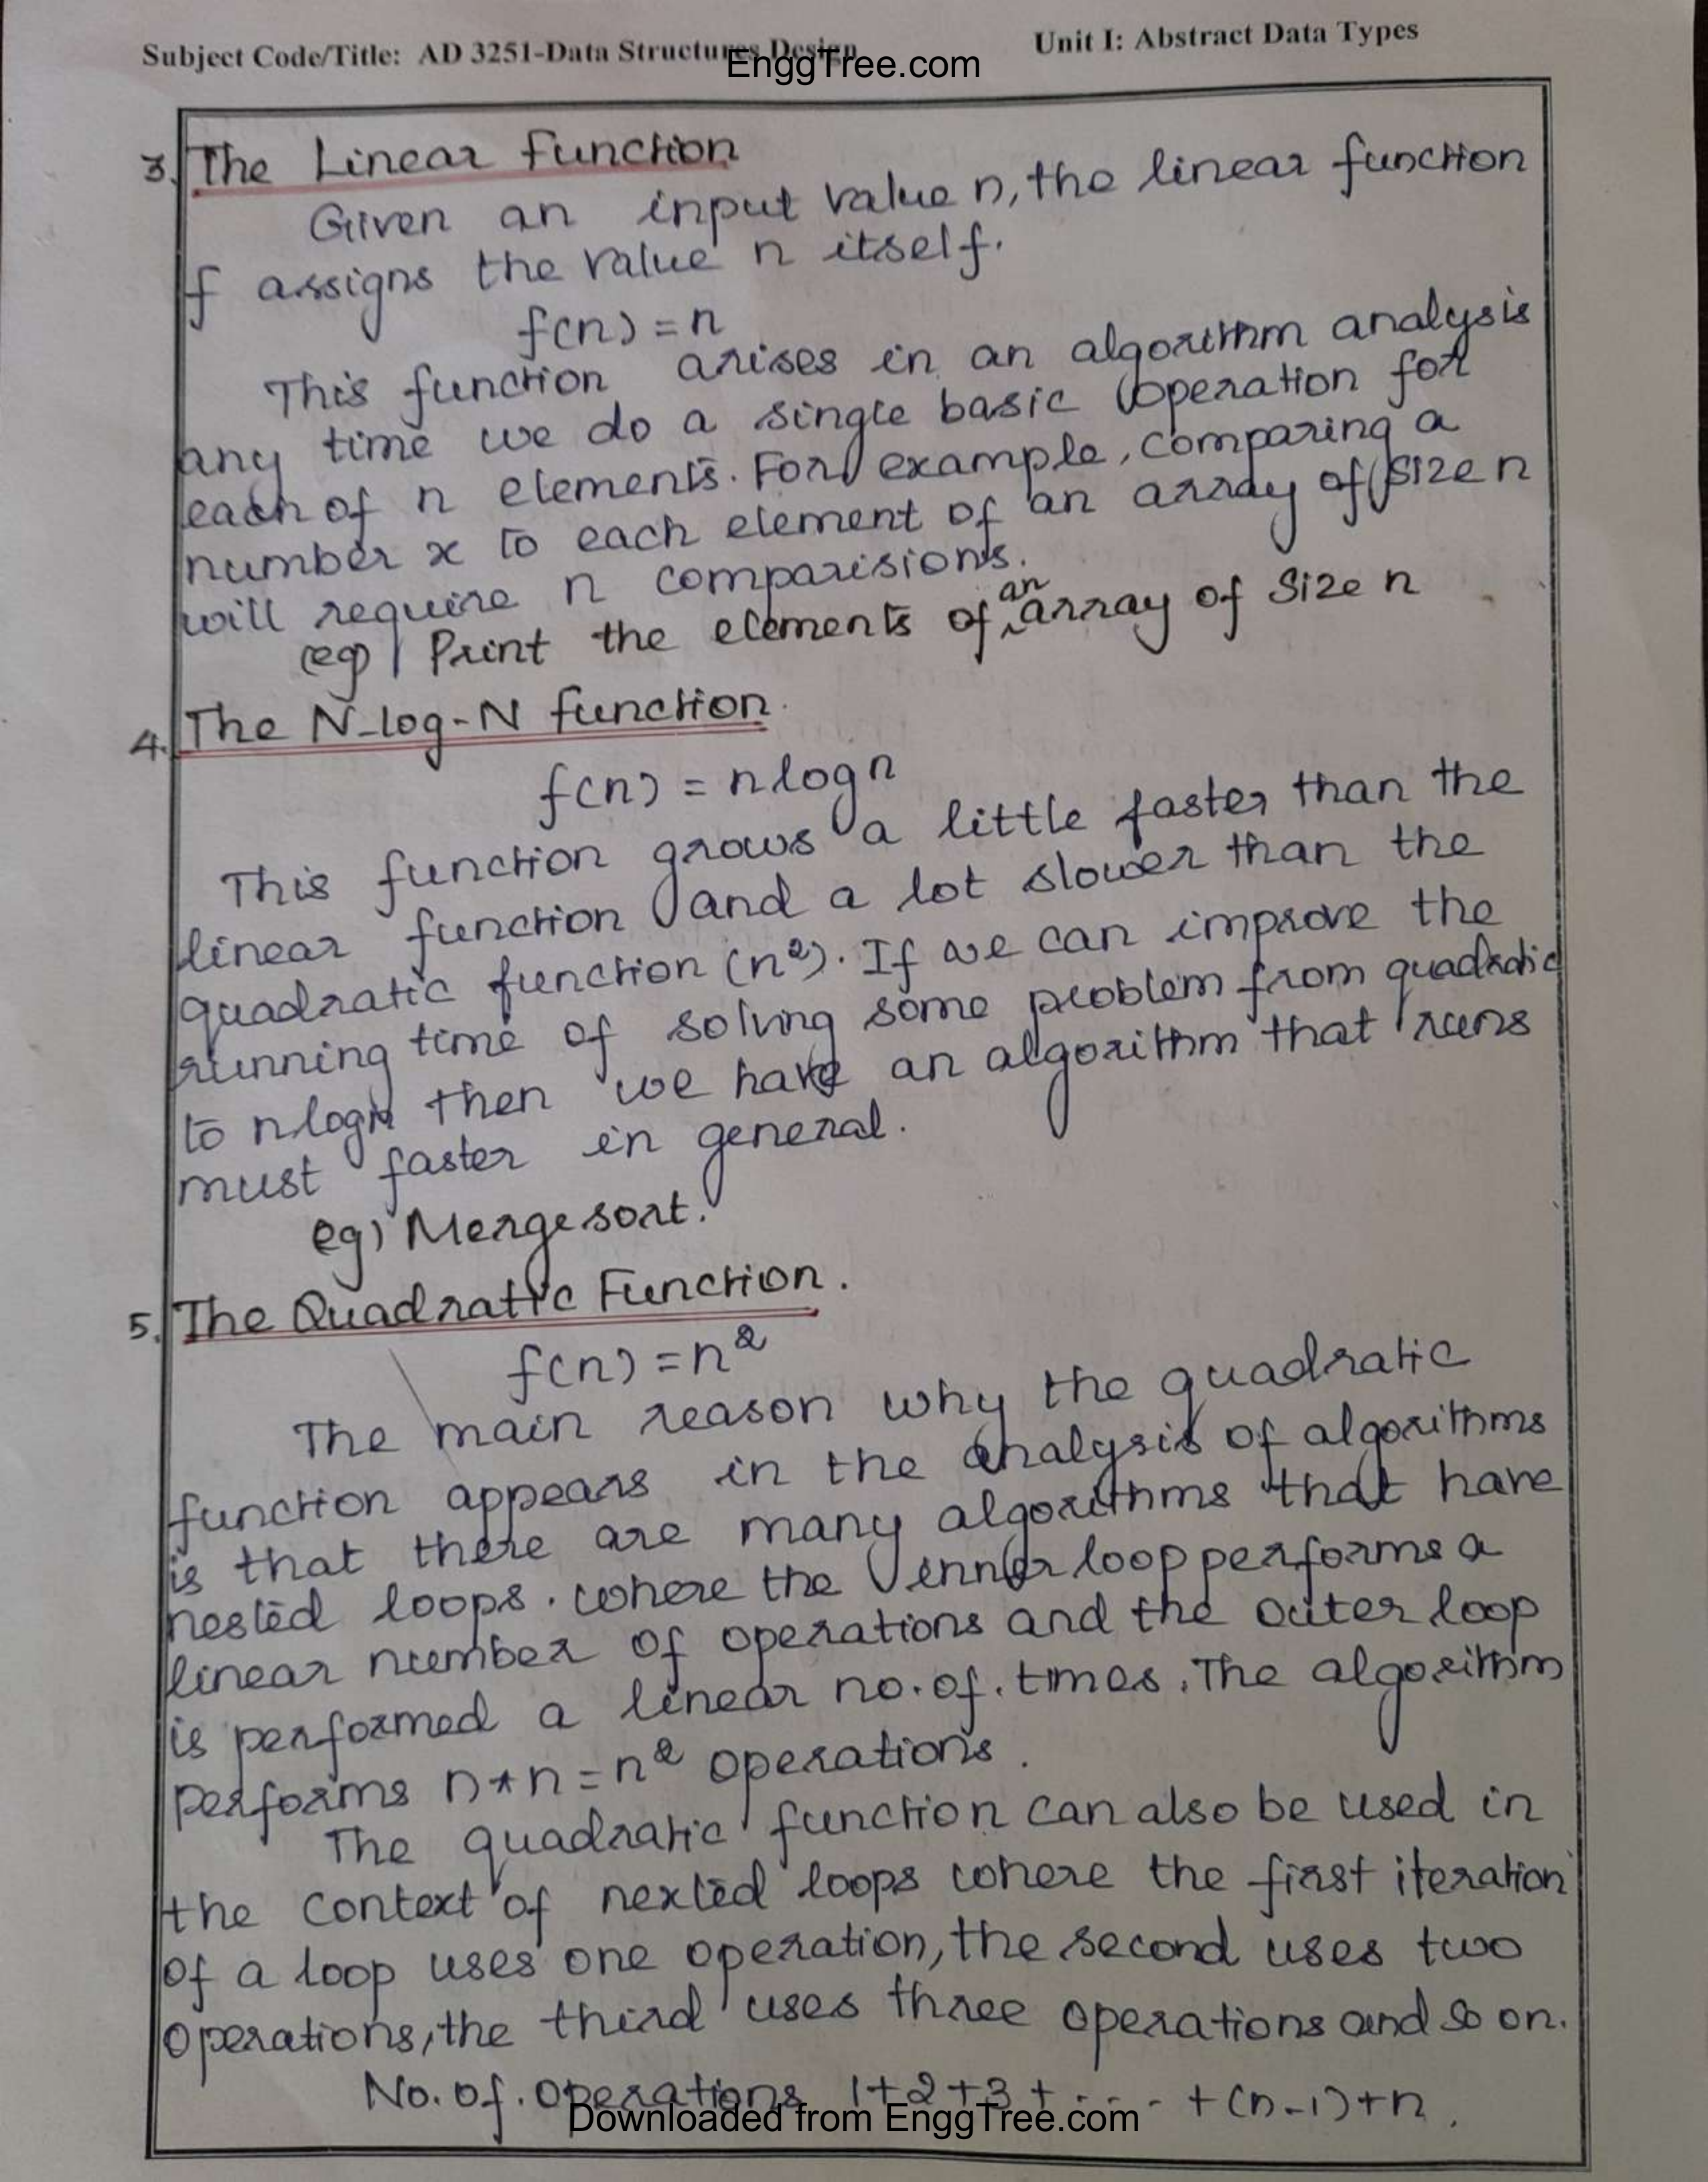 Subject Code/Title: AD 3251-Data Structures Design
Unit I: Abstract Data Types
EnggTree.com
3. The Linear Function
Given an input value n, the linear function
f assigns the value n itself.
f(n) = n
This function arises in an algorithm analysis
any time we do a single basic operation for
each of n elements. For example, comparing a
number x to each element of an array of size n
will require n comparisions.
(eg) Print the elements of an array of Size n
4. The N-log-N function.
f(n) = n log n
This function grows a little faster than the
linear function and a lot slower than the
quadratic function (n²). If we can improve the
running time of solving some problem from quadratic
to nlogn then we have an algorithm that runs
must faster in general.
eg) Mergesort.
5. The Quadratic Function.
f(n) = n²
The main reason why the quadratic
function appears in the analysis of algorithms
is that there are many algorithms that have
nested loops. where the inner loop performs a
linear number of operations and the outer loop
is performed a linear no. of. times. The algorithm
performs n*n = n² operations.
The quadratic function can also be used in
the context of nexted loops where the first iteration
of a loop uses one operation, the second uses two
operations, the third uses three operations and so on.
No. of. operations 1+2+3+ .... +(n-1)+n.
Downloaded from EnggTree.com